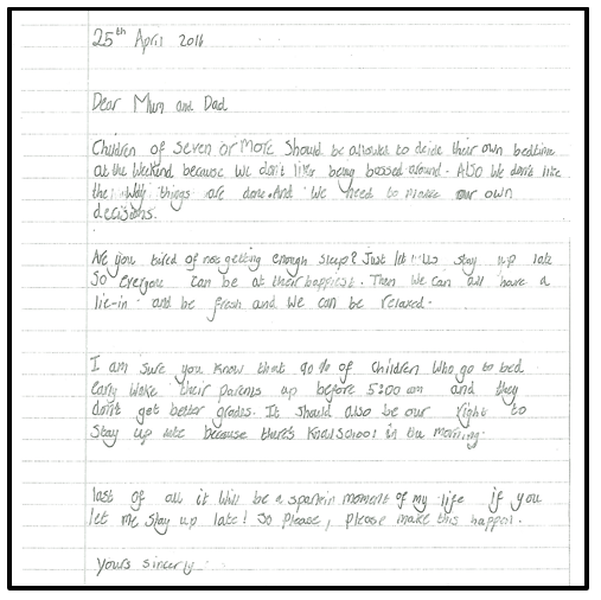 25th April 2016
Dear Mum and Dad
Children of seven or More Should be allowed to decide their own bedtime
at the weekend because we don't like being bossed around. Also we don't like
the way things are done. And we need to make our own
decisions.
Are you tired of not getting enough sleep? Just let us stay up late
So everyone can be at their happiest. Then we can all have a
lie-in and be fresh and we can be relaxed.
I am sure you know that 90% of children who go to bed
early wake their parents up before 5:00 am and they
don't get better grades. It should also be our right to
stay up late because there's in the morning.
last of all it will be a moment of my life if you
let me stay up late! So please, please make this happen.
yours sincerly